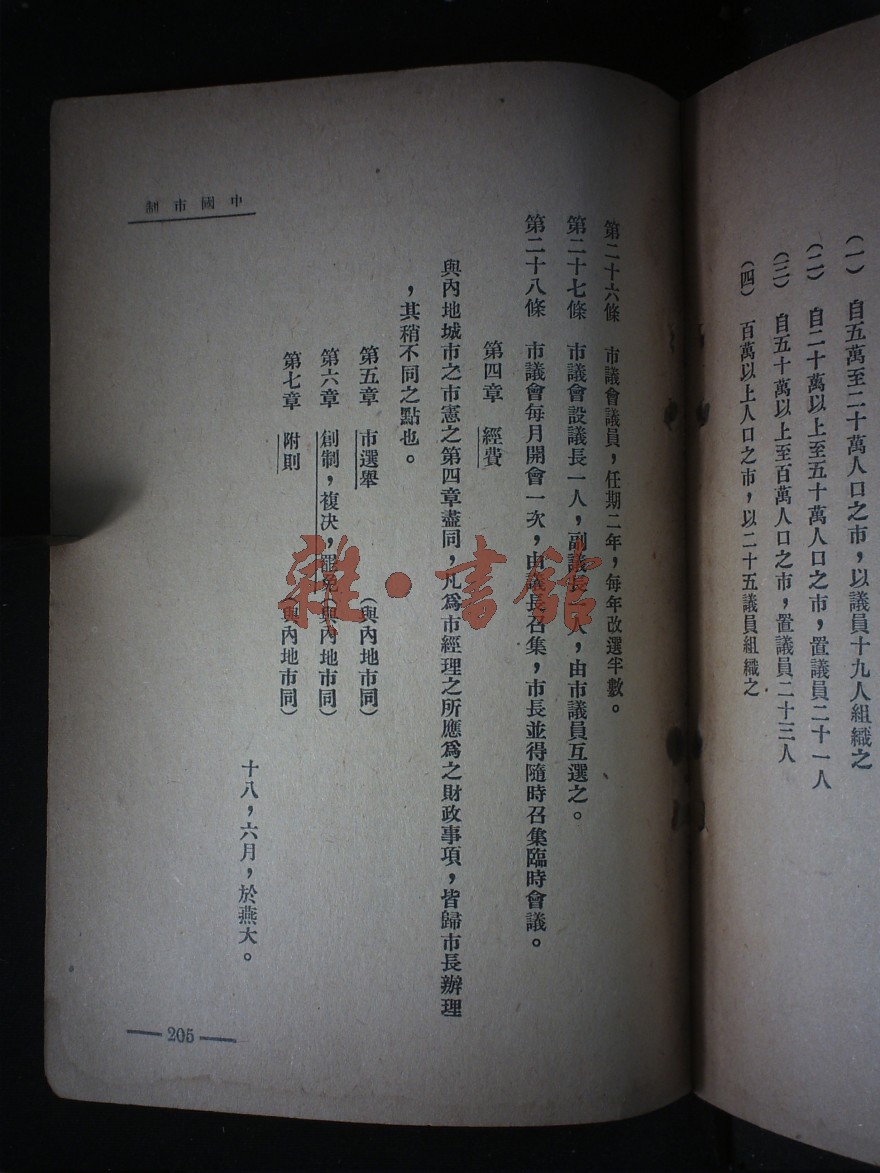 (一) 自五萬至二十萬人口之市，以議員十九人組織之
(二) 自二十萬以上至五十萬人口之市，置議員二十一人
(三) 自五十萬以上至百萬人口之市，置議員二十三人
(四) 百萬以上人口之市，以二十五議員組織之
第二十六條 市議會議員，任期二年，每年改選半數。
第二十七條 市議會設議長一人，副議長一人，由市議員互選之。
第二十八條 市議會每月開會一次，由議長召集，市長並得隨時召集臨時會議。
第四章 經費
與內地城市之市憲之第四章盡同，凡爲市經理之所應爲之財政事項，皆歸市長辦理
，其稍不同之點也。
第五章 市選舉 (與內地市同)
第六章 創制，複決，罷免(與內地市同)
第七章 附則 (與內地市同)
十八，六月，於燕大。
中國市制
205
雜·書館